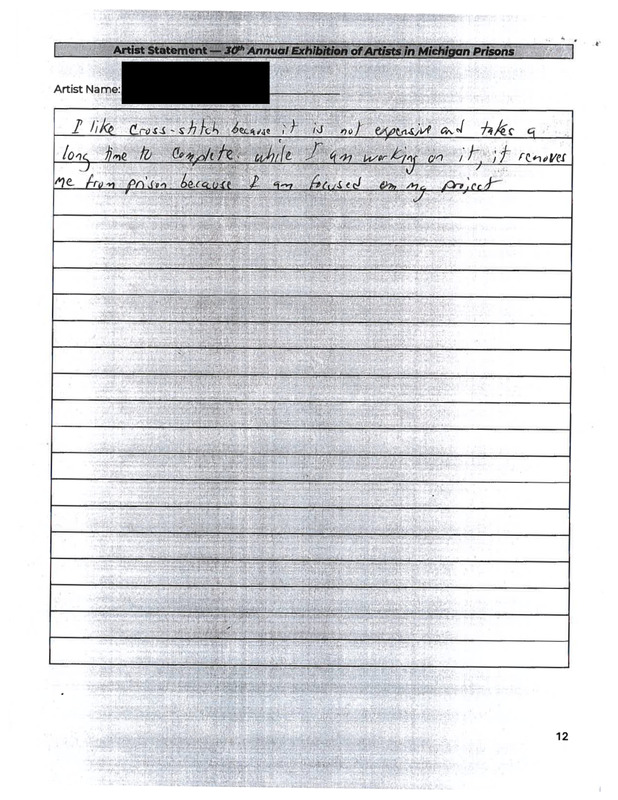 Artist Statement — 30th Annual Exhibition of Artists in Michigan Prisons
Artist Name:
I like cross-stitch because it is not expensive and takes a
long time to complete. while I am working on it, it removes
me from prison because I am focused on my project
12